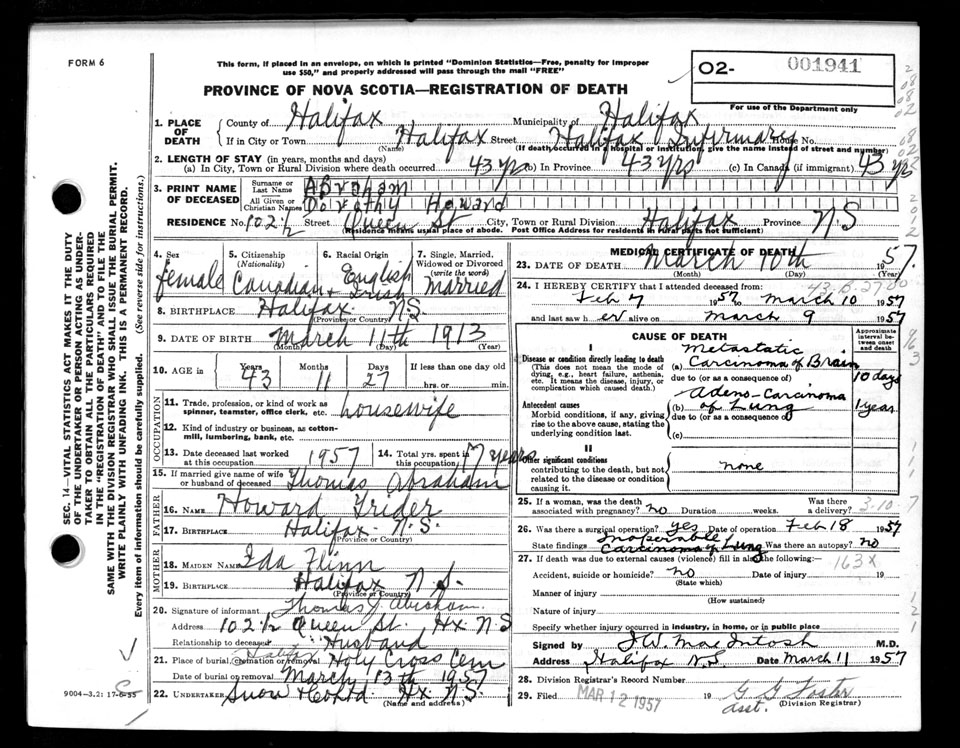 FORM 6
This form, if placed in an envelope, on which is printed "Dominion Statistics—Free, penalty for improper
use $50," and properly addressed will pass through the mail "FREE"
O2- 001941
For use of the Department only
PROVINCE OF NOVA SCOTIA—REGISTRATION OF DEATH
1. PLACE OF DEATH
County of Halifax Municipality of Halifax
If in City or Town Halifax Street Halifax Infirmary House No.
(Name) (If death occurred in a hospital or institution, give the name instead of street and number)
2. LENGTH OF STAY (in years, months and days)
(a) In City, Town or Rural Division where death occurred 43 yrs (b) In Province 43 yrs (c) In Canada (if immigrant) 43 yrs
3. PRINT NAME OF DECEASED
Surname or Last Name Abraham
All Given or Christian Names Dorothy Howard
RESIDENCE No. 102½ Street Queen St City, Town or Rural Division Halifax Province N.S
(Residence means usual place of abode. Post Office Address for residents in rural parts not sufficient)
4. Sex female
5. Citizenship (Nationality) Canadian
6. Racial Origin English + Irish
7. Single, Married, Widowed or Divorced (write the word) Married
8. BIRTHPLACE Halifax N.S.
(Province or Country)
9. DATE OF BIRTH March 11th 1913
(Month) (Day) (Year)
10. AGE in Years 43 Months 11 Days 27 If less than one day old
hrs. or min.
OCCUPATION
11. Trade, profession, or kind of work as
spinner, teamster, office clerk, etc. housewife
12. Kind of industry or business, as cotton-
mill, lumbering, bank, etc.
13. Date deceased last worked at this occupation 1957
14. Total yrs. spent in this occupation 17 years
15. If married give name of wife or husband of deceased Thomas Abraham
FATHER
16. Name Howard Trider
17. BIRTHPLACE Halifax N.S.
(Province or Country)
MOTHER
18. MAIDEN NAME Ida Flinn
19. BIRTHPLACE Halifax N.S.
(Province or Country)
20. Signature of informant Thomas J. Abraham
Address 102½ Queen St. Hx. N.S
Relationship to deceased Husband
21. Place of burial, cremation or removal Halifax Holy Cross Cem
Date of burial or removal March 13th 1957
22. UNDERTAKER Snow & Co Ltd Hx. N.S.
(Name and address)
MEDICAL CERTIFICATE OF DEATH
23. DATE OF DEATH March 10th 1957.
(Month) (Day) (Year)
24. I HEREBY CERTIFY that I attended deceased from:
Feb 7 1957 to March 10 1957
and last saw her alive on March 9 1957
CAUSE OF DEATH
Approximate interval between onset and death
I
Disease or condition directly leading to death
(This does not mean the mode of dying, e.g., heart failure, asthenia, etc. It means the disease, injury, or complication which caused death.)
(a) Metastatic Carcinoma of Brain 10 days
due to (or as a consequence of)
Antecedent causes
Morbid conditions, if any, giving rise to the above cause, stating the underlying condition last.
(b) Adeno-Carcinoma of Lung 1 year
due to (or as a consequence of)
(c)
II
Other significant conditions
contributing to the death, but not related to the disease or condition causing it.
none
25. If a woman, was the death associated with pregnancy? no Duration weeks. Was there a delivery?
3-10-7
26. Was there a surgical operation? yes Date of operation Feb 18 1957
State findings Inoperable Carcinoma of Lung Was there an autopsy? no
27. If death was due to external causes (violence) fill in also the following:—
163X
Accident, suicide or homicide? no Date of injury 19
(State which)
Manner of injury
(How sustained)
Nature of injury
Specify whether injury occurred in industry, in home, or in public place
Signed by J.W. MacIntosh M.D.
Address Halifax N.S. Date March 11 1957
28. Division Registrar's Record Number
29. Filed MAR 12 1957 19 G G Foster
asst. (Division Registrar)
SEC. 14—VITAL STATISTICS ACT MAKES IT THE DUTY
OF THE UNDERTAKER OR PERSON ACTING AS UNDER-
TAKER TO OBTAIN ALL THE PARTICULARS REQUIRED
IN THE "REGISTRATION OF DEATH" AND TO FILE THE
SAME WITH THE DIVISION REGISTRAR WHO SHALL ISSUE THE BURIAL PERMIT.
WRITE PLAINLY WITH UNFADING INK. THIS IS A PERMANENT RECORD.
Every item of information should be carefully supplied. (See reverse side for instructions.)
9004-3.2: 17-6-55